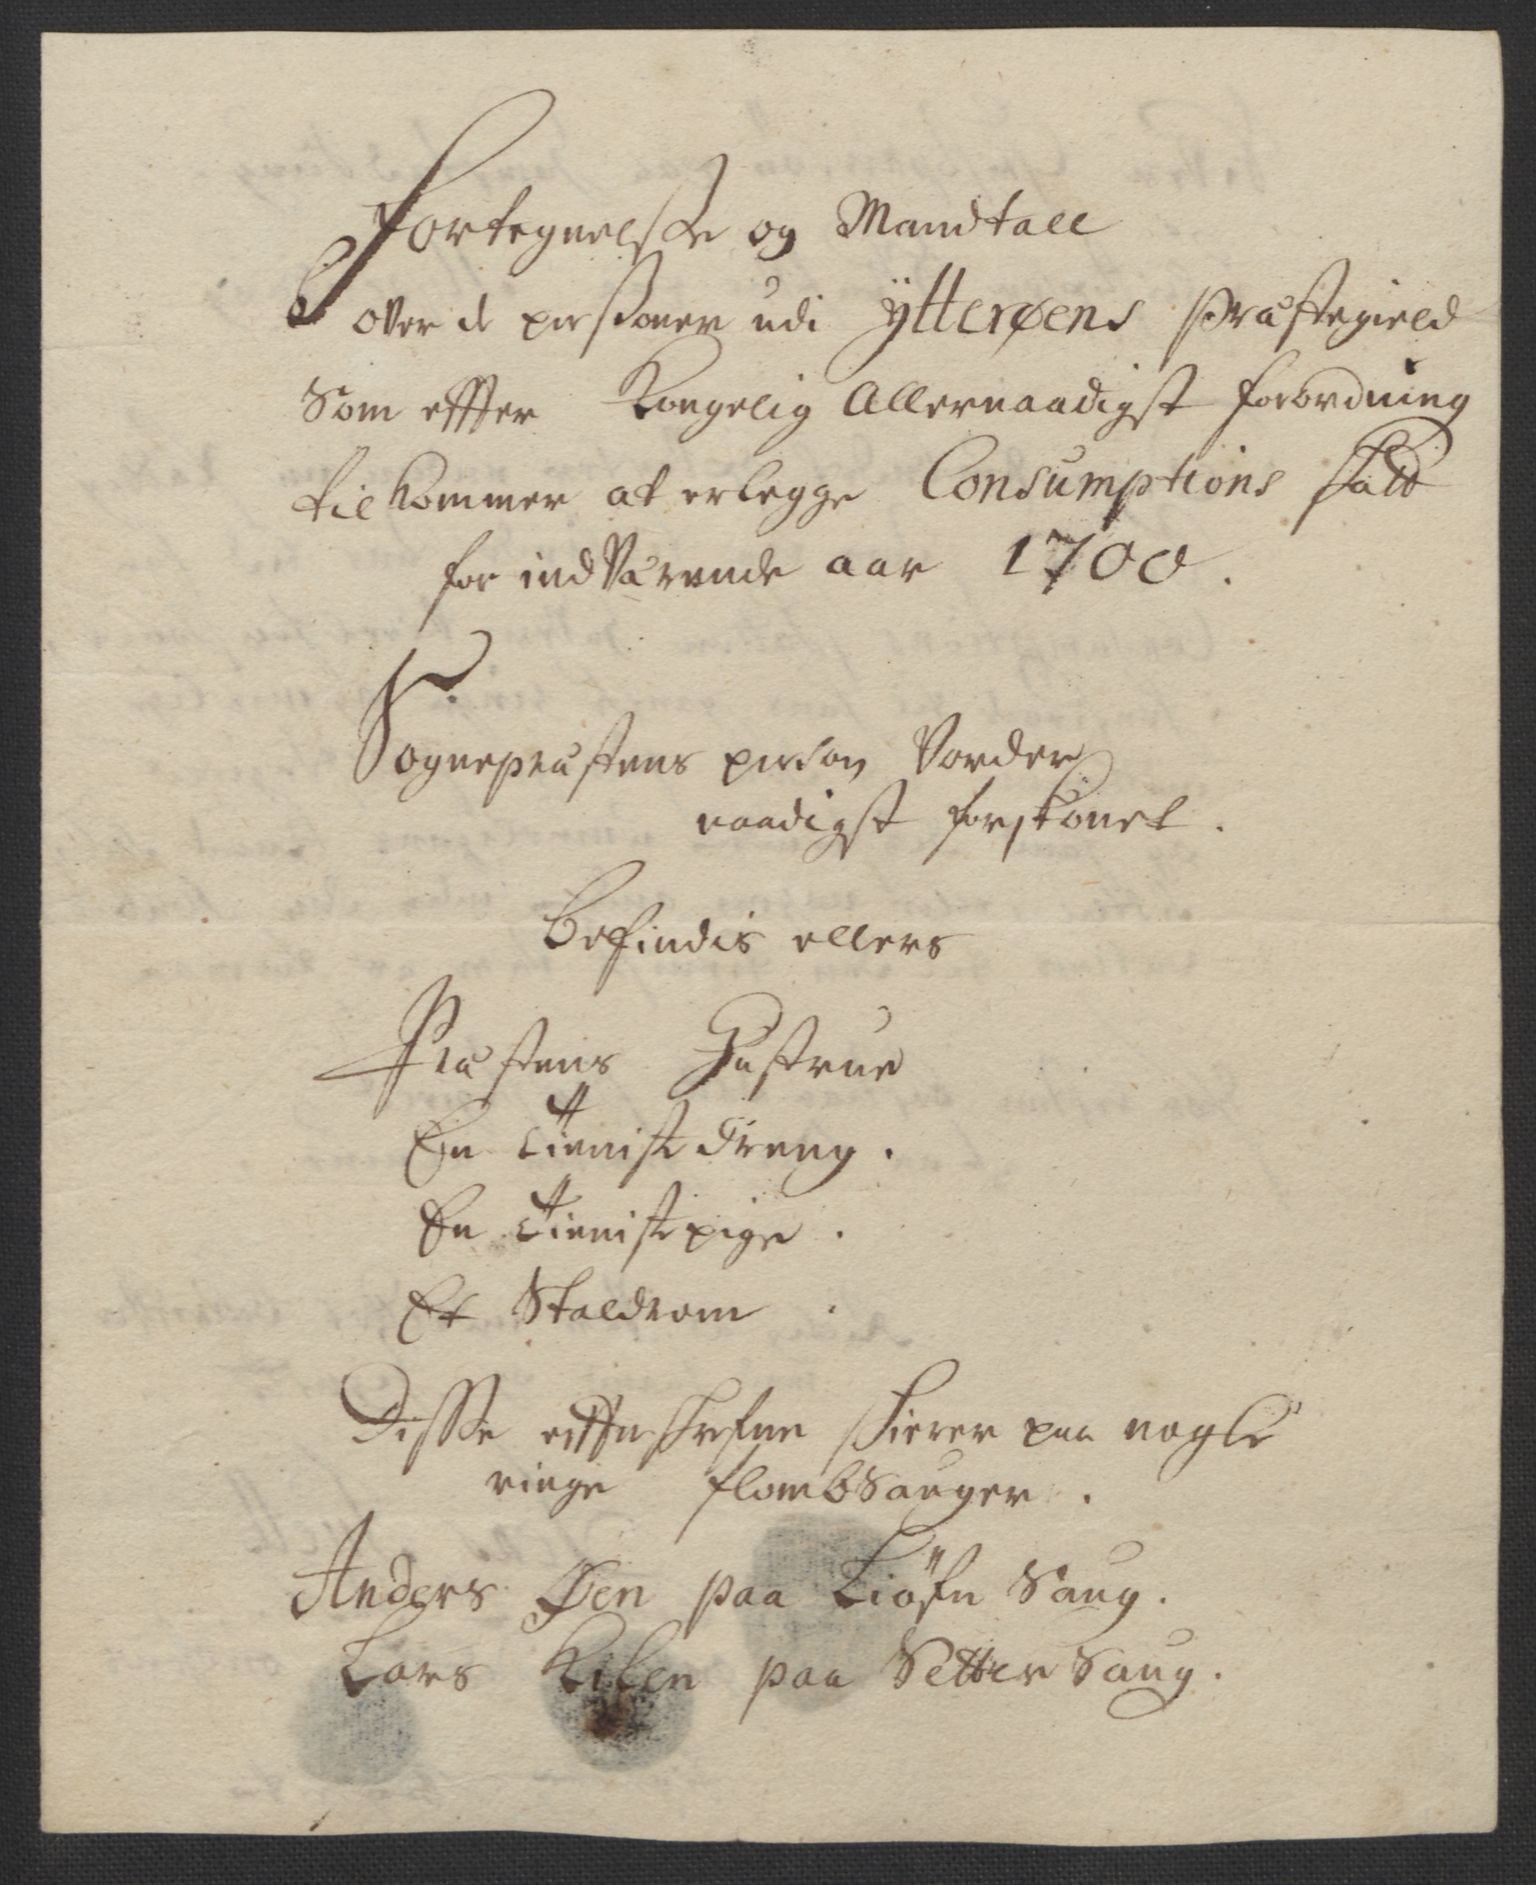 Fortegnelse og Mandtall
over de personer udi Ÿtterøens Præstegield
Som effter Kongelig Allernaadigst forordning
tilkommer at erlegge Consumptions skatt
for indVærende aar 1700.
Sognepræstens person Vorder
naadigst forskonet.
Befindis ellers
Præstens Hustrue
En tieniste dreng.
En tieniste pige.
Et Staldrom.
Disse effterskrefne skierer paa nogle
ringe flombSauger.
Anders Øen paa Liøfn Saug.
Lars Kilen paa Setter Saug.